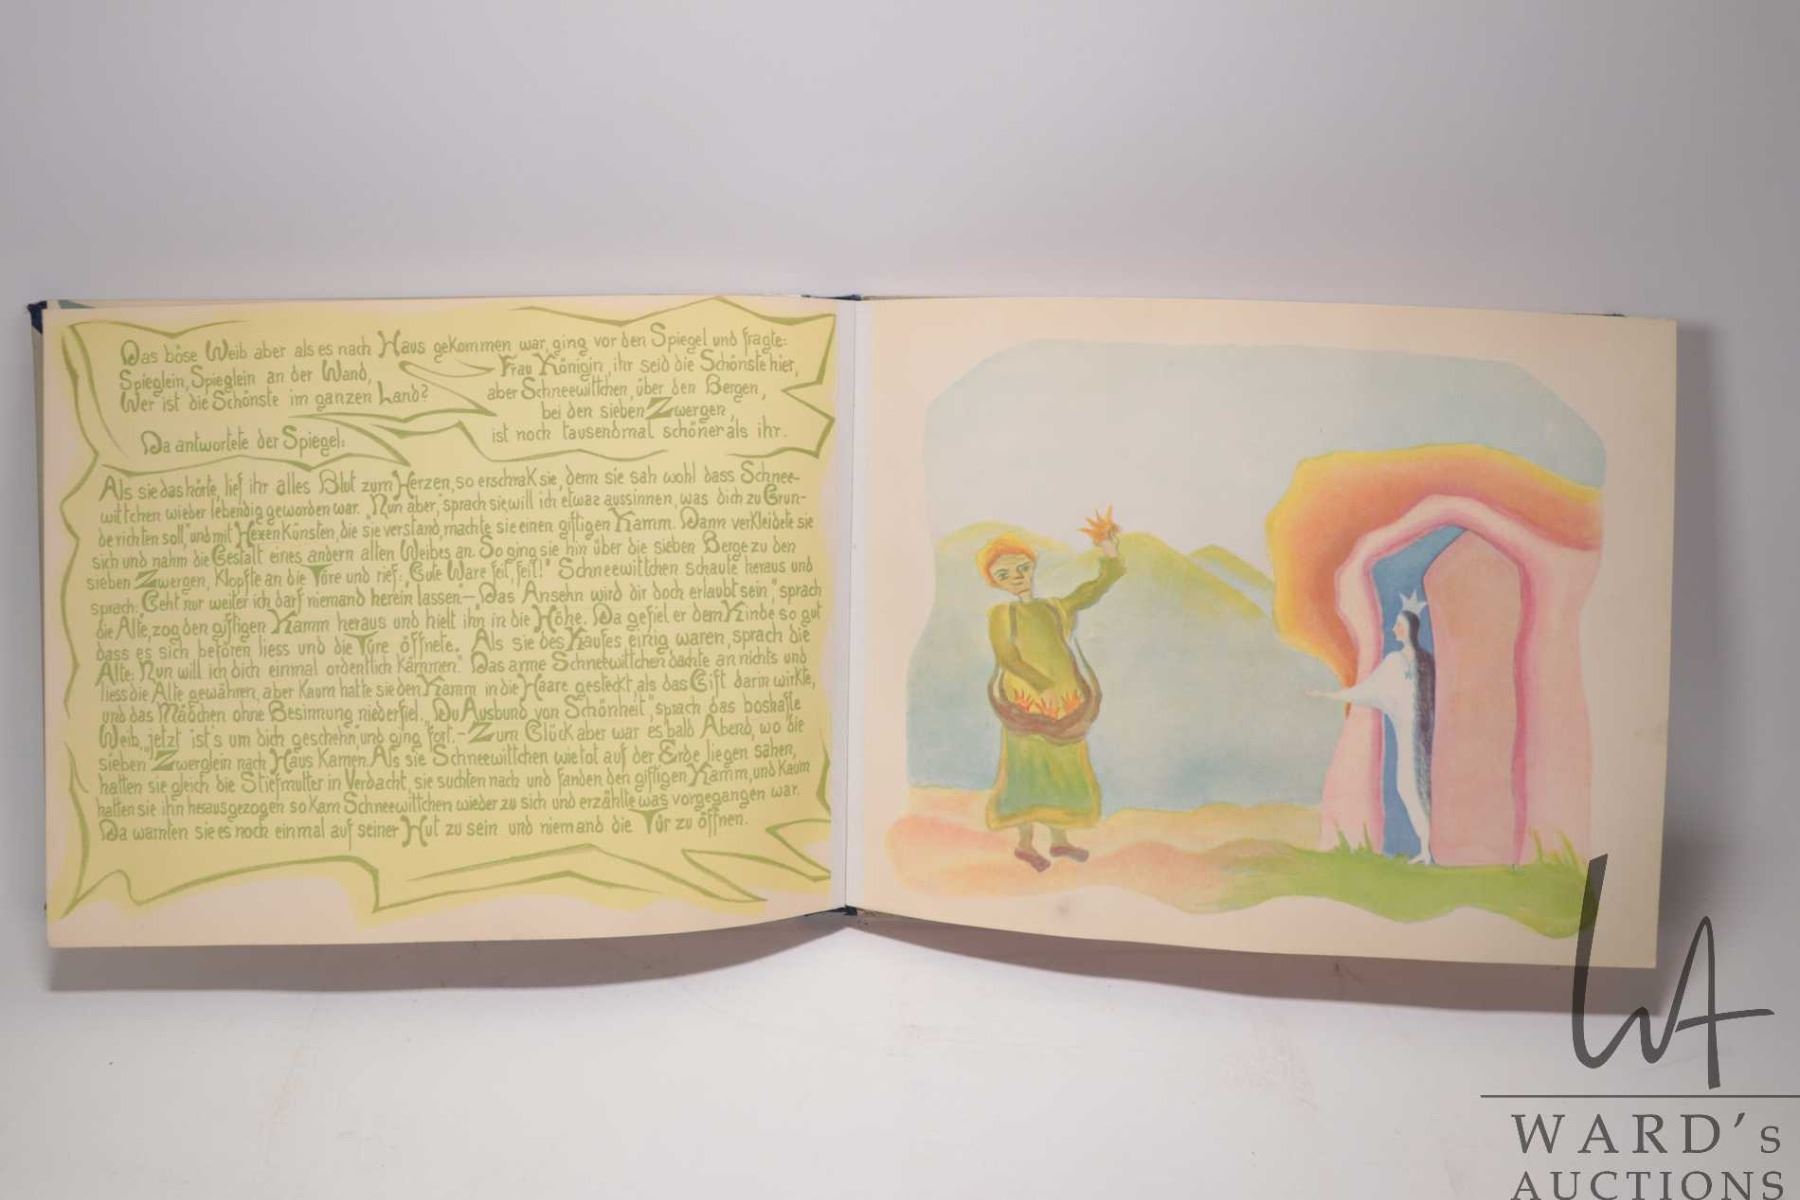 Das böse Weib aber als es nach Haus gekommen war, ging vor den Spiegel und fragte:
Spieglein, Spieglein an der Wand,
Wer ist die Schönste im ganzen Land?
Da antwortete der Spiegel:
Frau Königin, ihr seid die Schönste hier,
aber Schneewittchen, über den Bergen,
bei den sieben Zwergen,
ist noch tausendmal schöner als ihr.
Als sie das hörte, lief ihr alles Blut zum Herzen, so erschrak sie, denn sie sah wohl dass Schnee-
wittchen wieder lebendig geworden war. „Nun aber," sprach sie, will ich etwas aussinnen, was dich zu Grun-
de richten soll", und mit Hexenkünsten, die sie verstand, machte sie einen giftigen Kamm. Dann verkleidete sie
sich und nahm die Gestalt eines andern alten Weibes an. So ging sie hin über die sieben Berge zu den
sieben Zwergen, klopfte an die Türe und rief: „Gute Ware feil, feil!" Schneewittchen schaute heraus und
sprach: Geht nur weiter ich darf niemand herein lassen – „Das Ansehn wird dir doch erlaubt sein", sprach
die Alte, zog den giftigen Kamm heraus und hielt ihn in die Höhe. Da gefiel er dem Kinde so gut
dass es sich betören liess und die Türe öffnete. Als sie des Kaufes einig waren, sprach die
Alte: „Nun will ich dich einmal ordentlich kämmen." Das arme Schneewittchen dachte an nichts und
liess die Alte gewähren, aber kaum hatte sie den Kamm in die Haare gesteckt, als das Gift darin wirkte,
und das Mädchen ohne Besinnung niederfiel. „Du Ausbund von Schönheit", sprach das boshafte
Weib, „jetzt ist's um dich geschehn", und ging fort. – Zum Glück aber war es bald Abend, wo die
sieben Zwerglein nach Haus kamen. Als sie Schneewittchen wie tot auf der Erde liegen sahen,
hatten sie gleich die Stiefmutter in Verdacht, sie suchten nach und fanden den giftigen Kamm, und kaum
hatten sie ihn herausgezogen so kam Schneewittchen wieder zu sich und erzählte was vorgegangen war.
Da warnten sie es noch einmal auf seiner Hut zu sein und niemand die Tür zu öffnen.
WA
WARD's
AUCTIONS